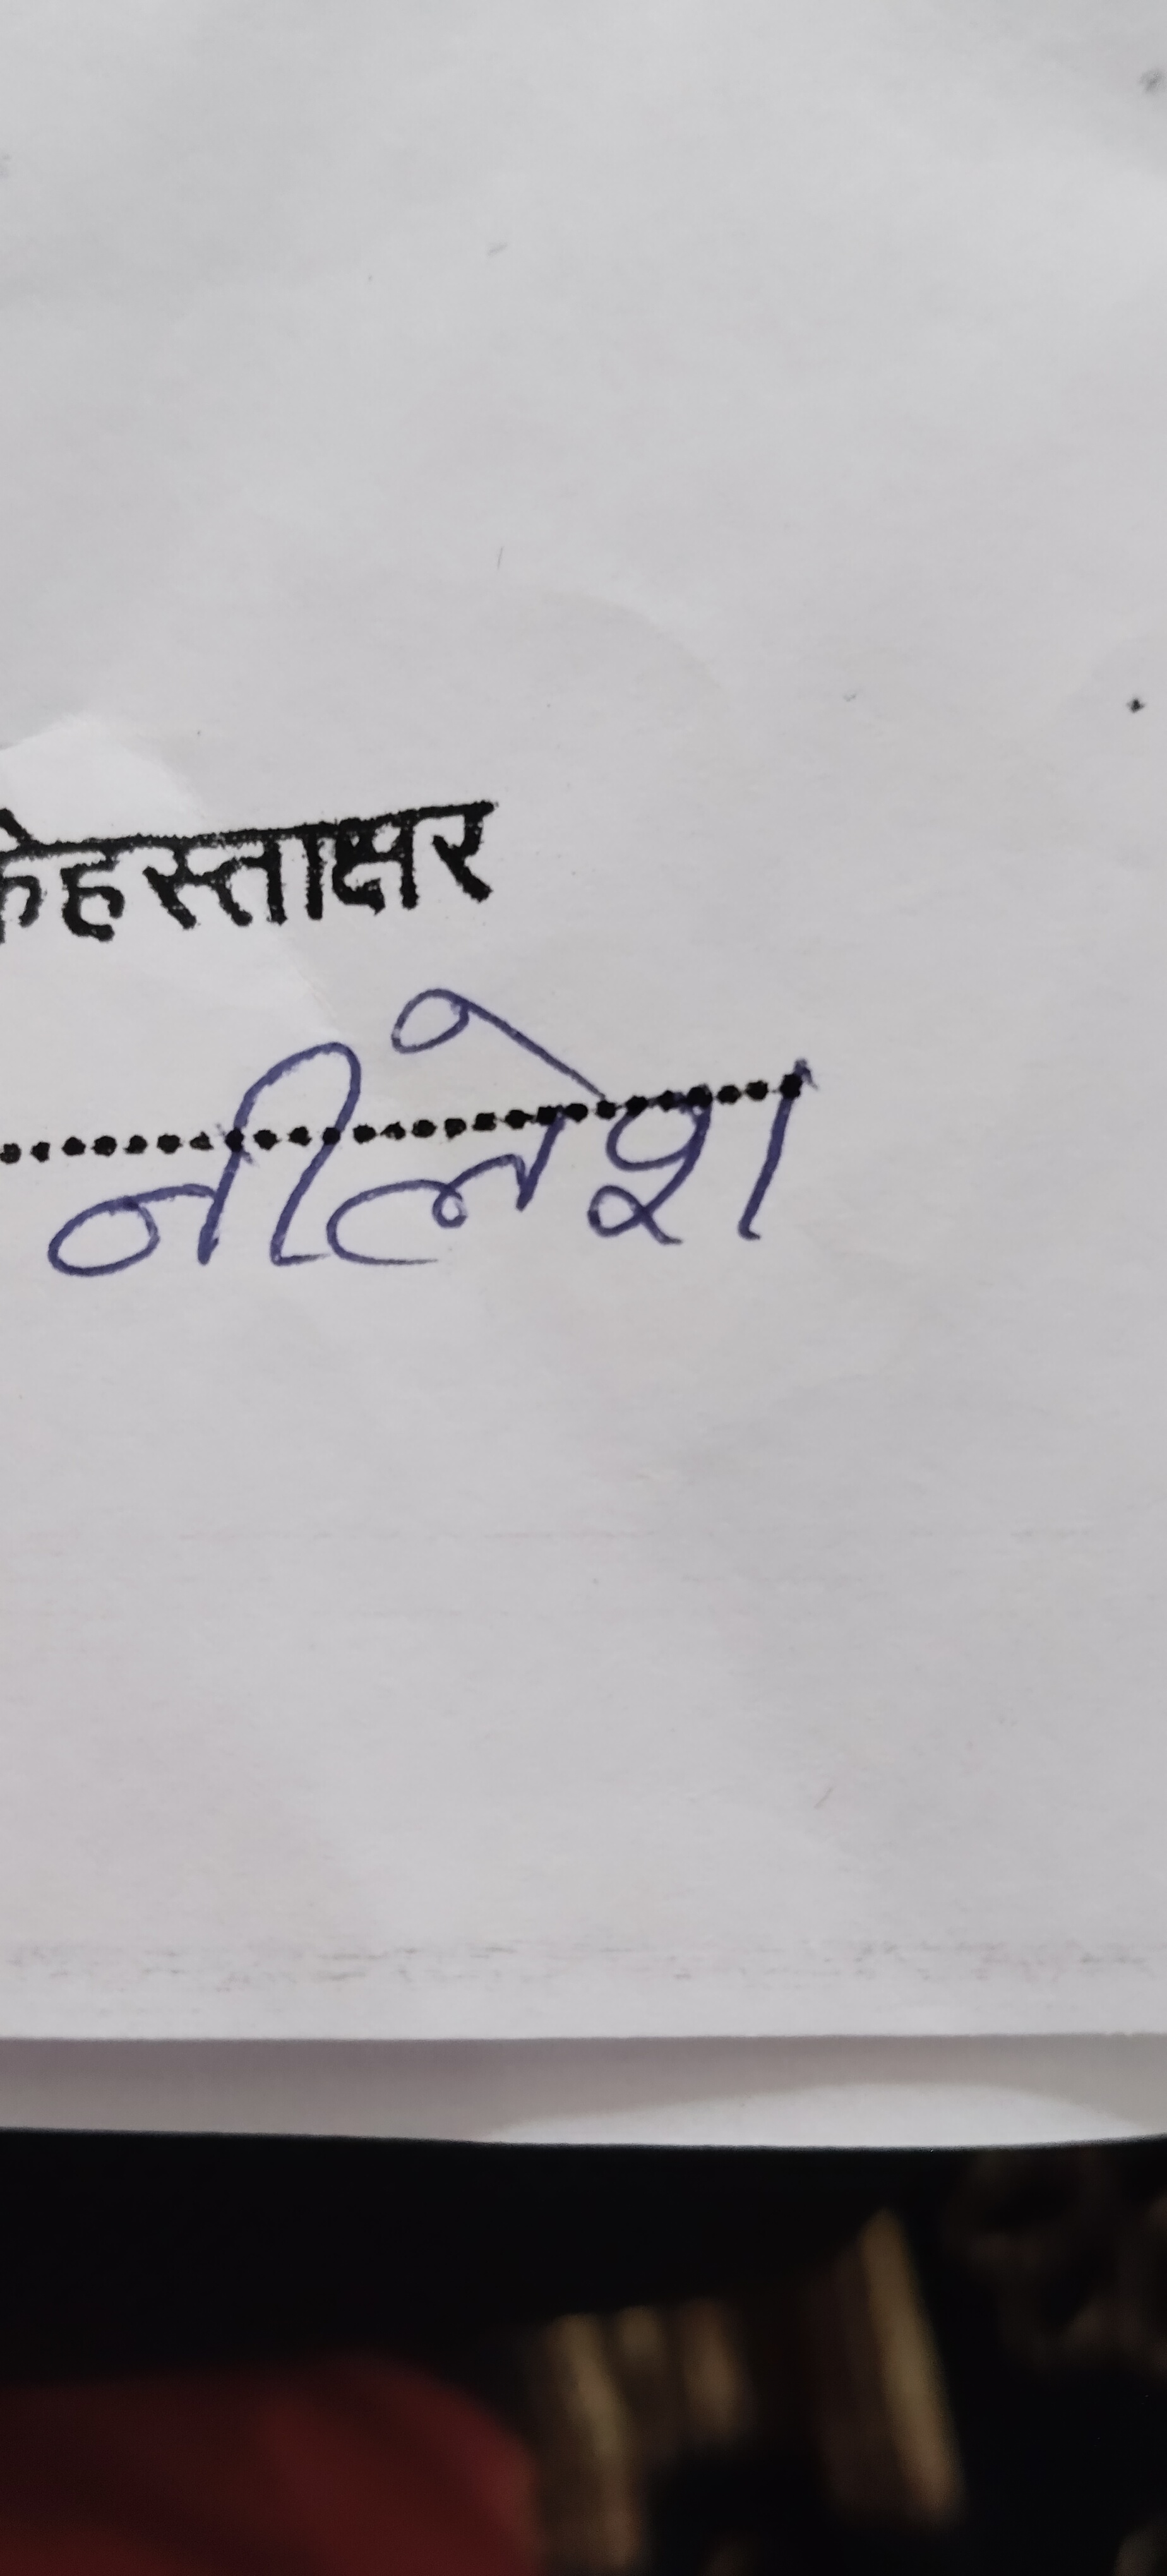 के हस्ताक्षर
नीलेश